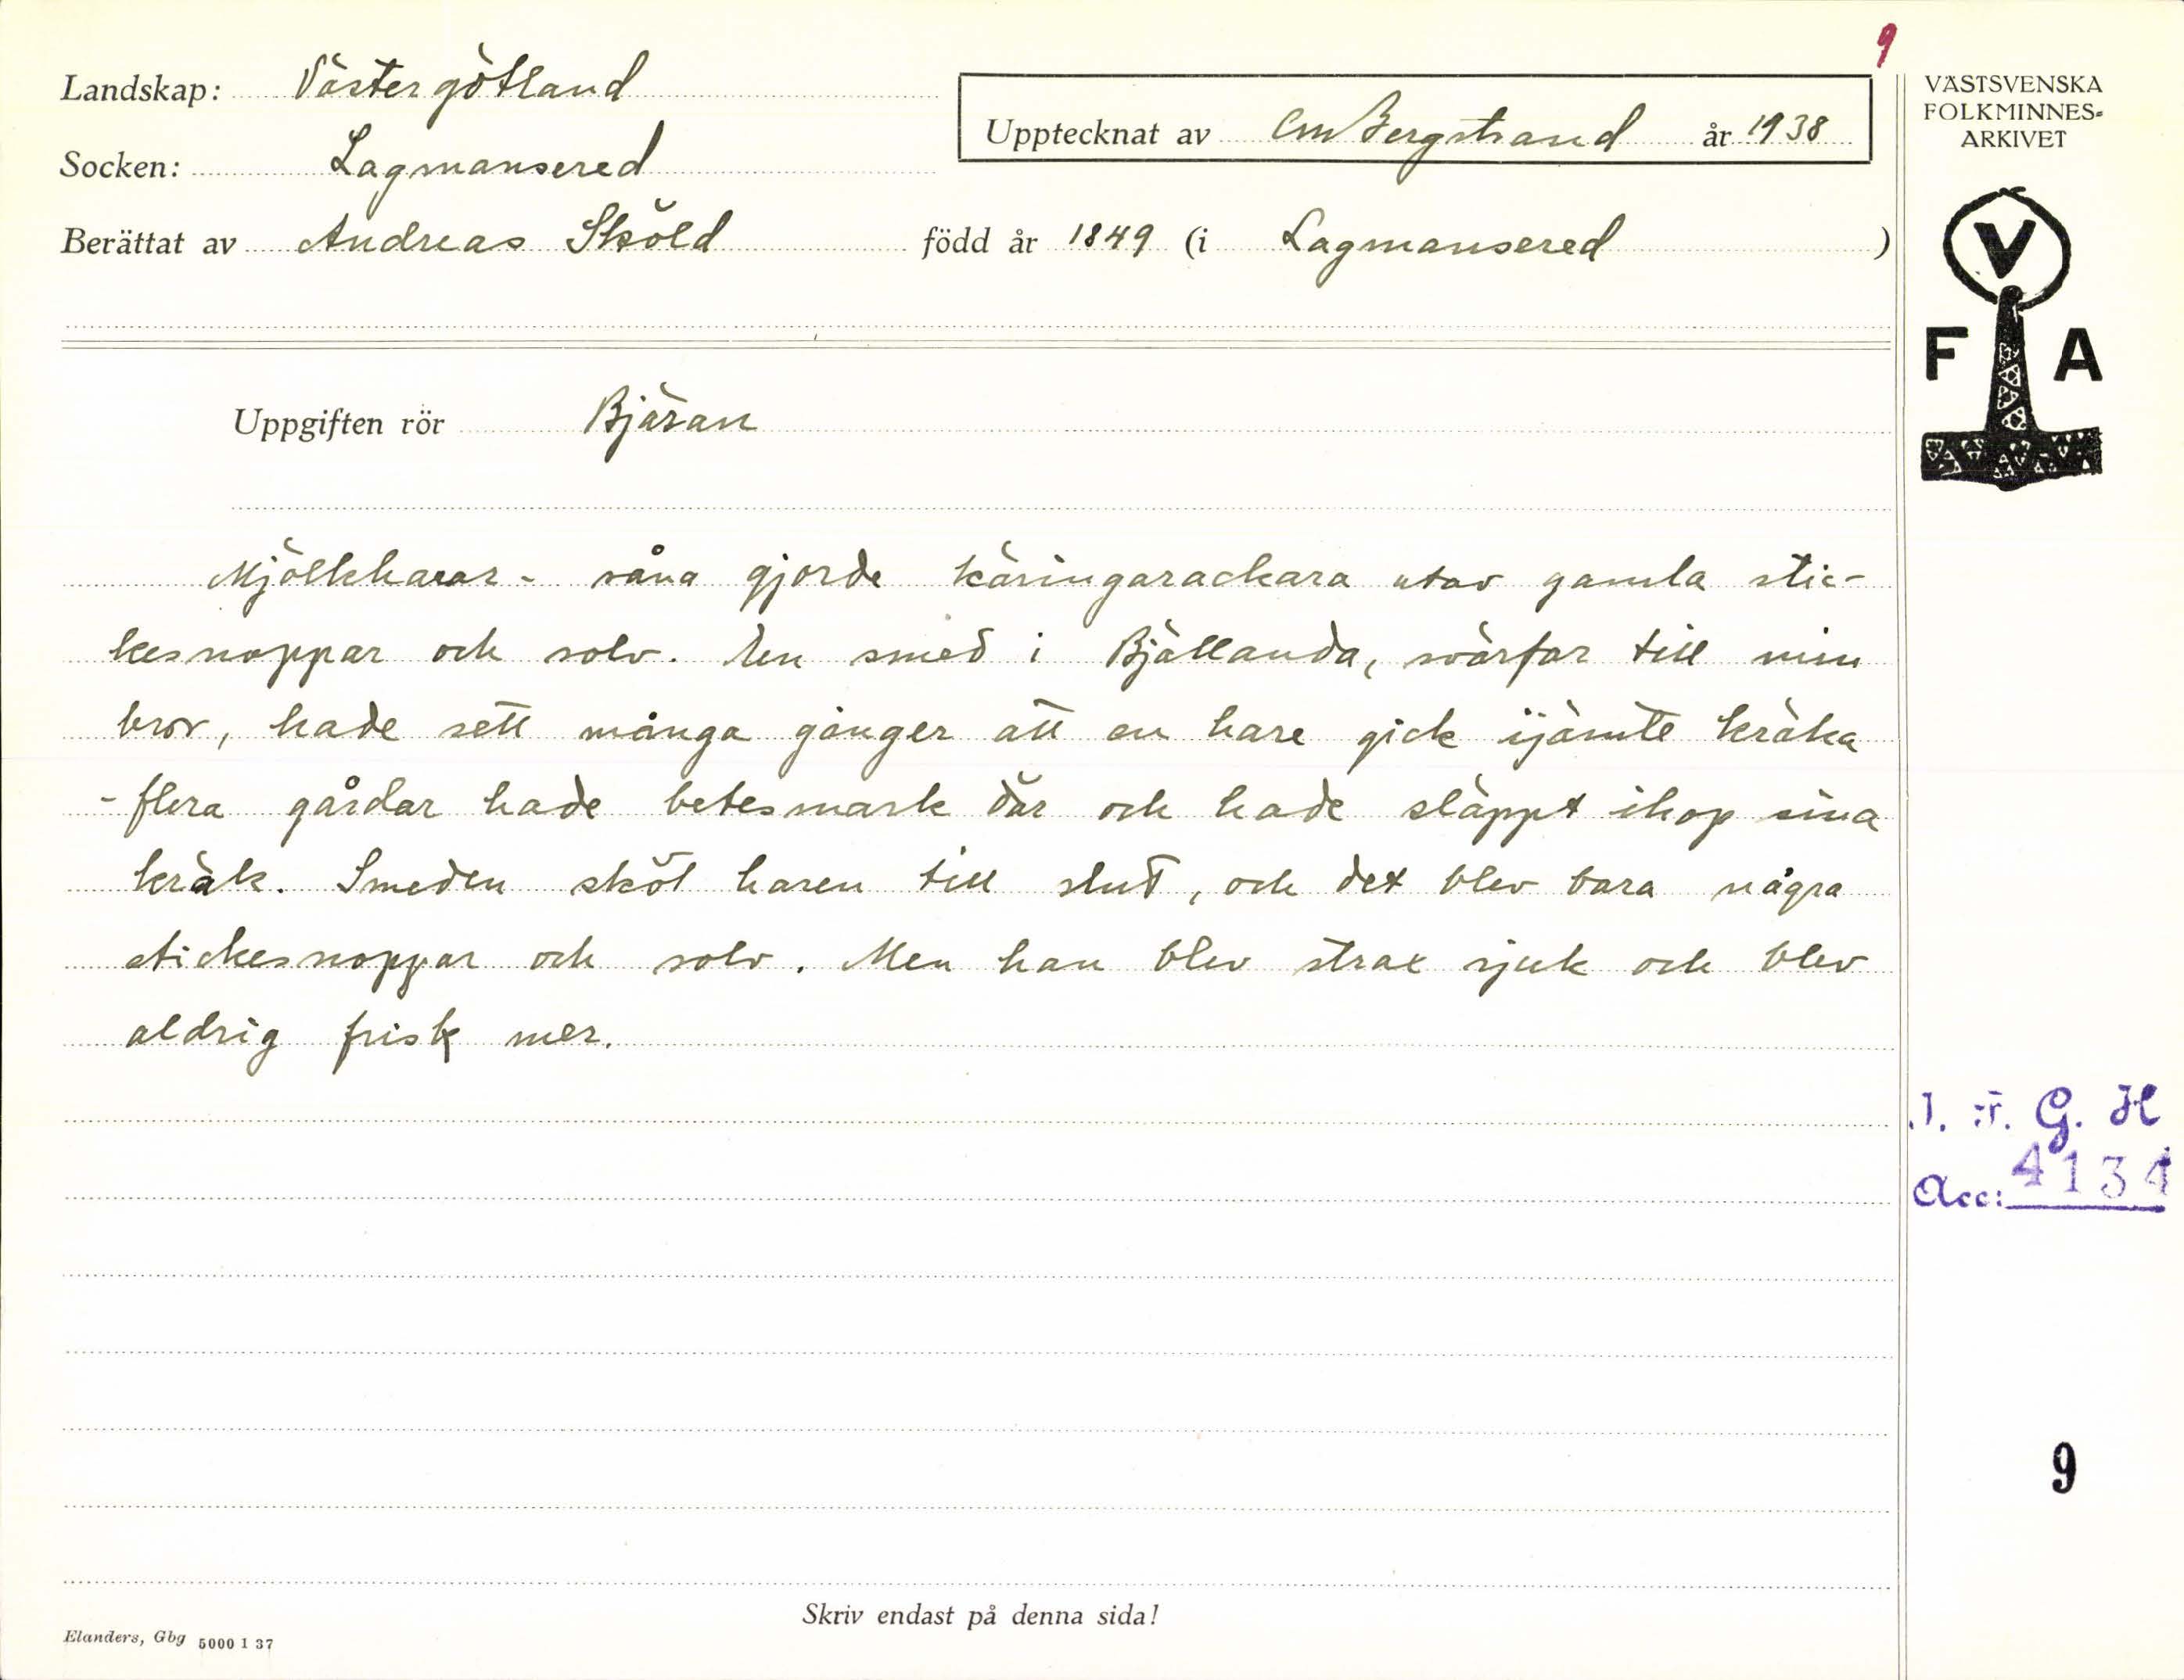 9
Landskap: Västergötland
Socken: Lagmansered
Upptecknat av CM Bergstrand år 1938
Berättat av Andreas Sköld född år 1849 (i Lagmansered )
VÄSTSVENSKA
FOLKMINNES-
ARKIVET
V
F A
Uppgiften rör Bjäran
Mjölkharar - såna gjorde käringarackara utav gamla stic-
kesnoppar och solv. En smed i Bjällanda, svärfar till min
bror, hade sett många gånger att en hare gick ijämte kräka
- flera gårdar hade betesmark där och hade släppt ihop sina
kräk. Smeden sköt haren till slut, och det blev bara några
stickesnoppar och solv. Men han blev strax sjuk och blev
aldrig frisk mer.
I. F. G. H
Acc: 4134
9
Skriv endast på denna sida!
Elanders, Gbg 5000 1 37